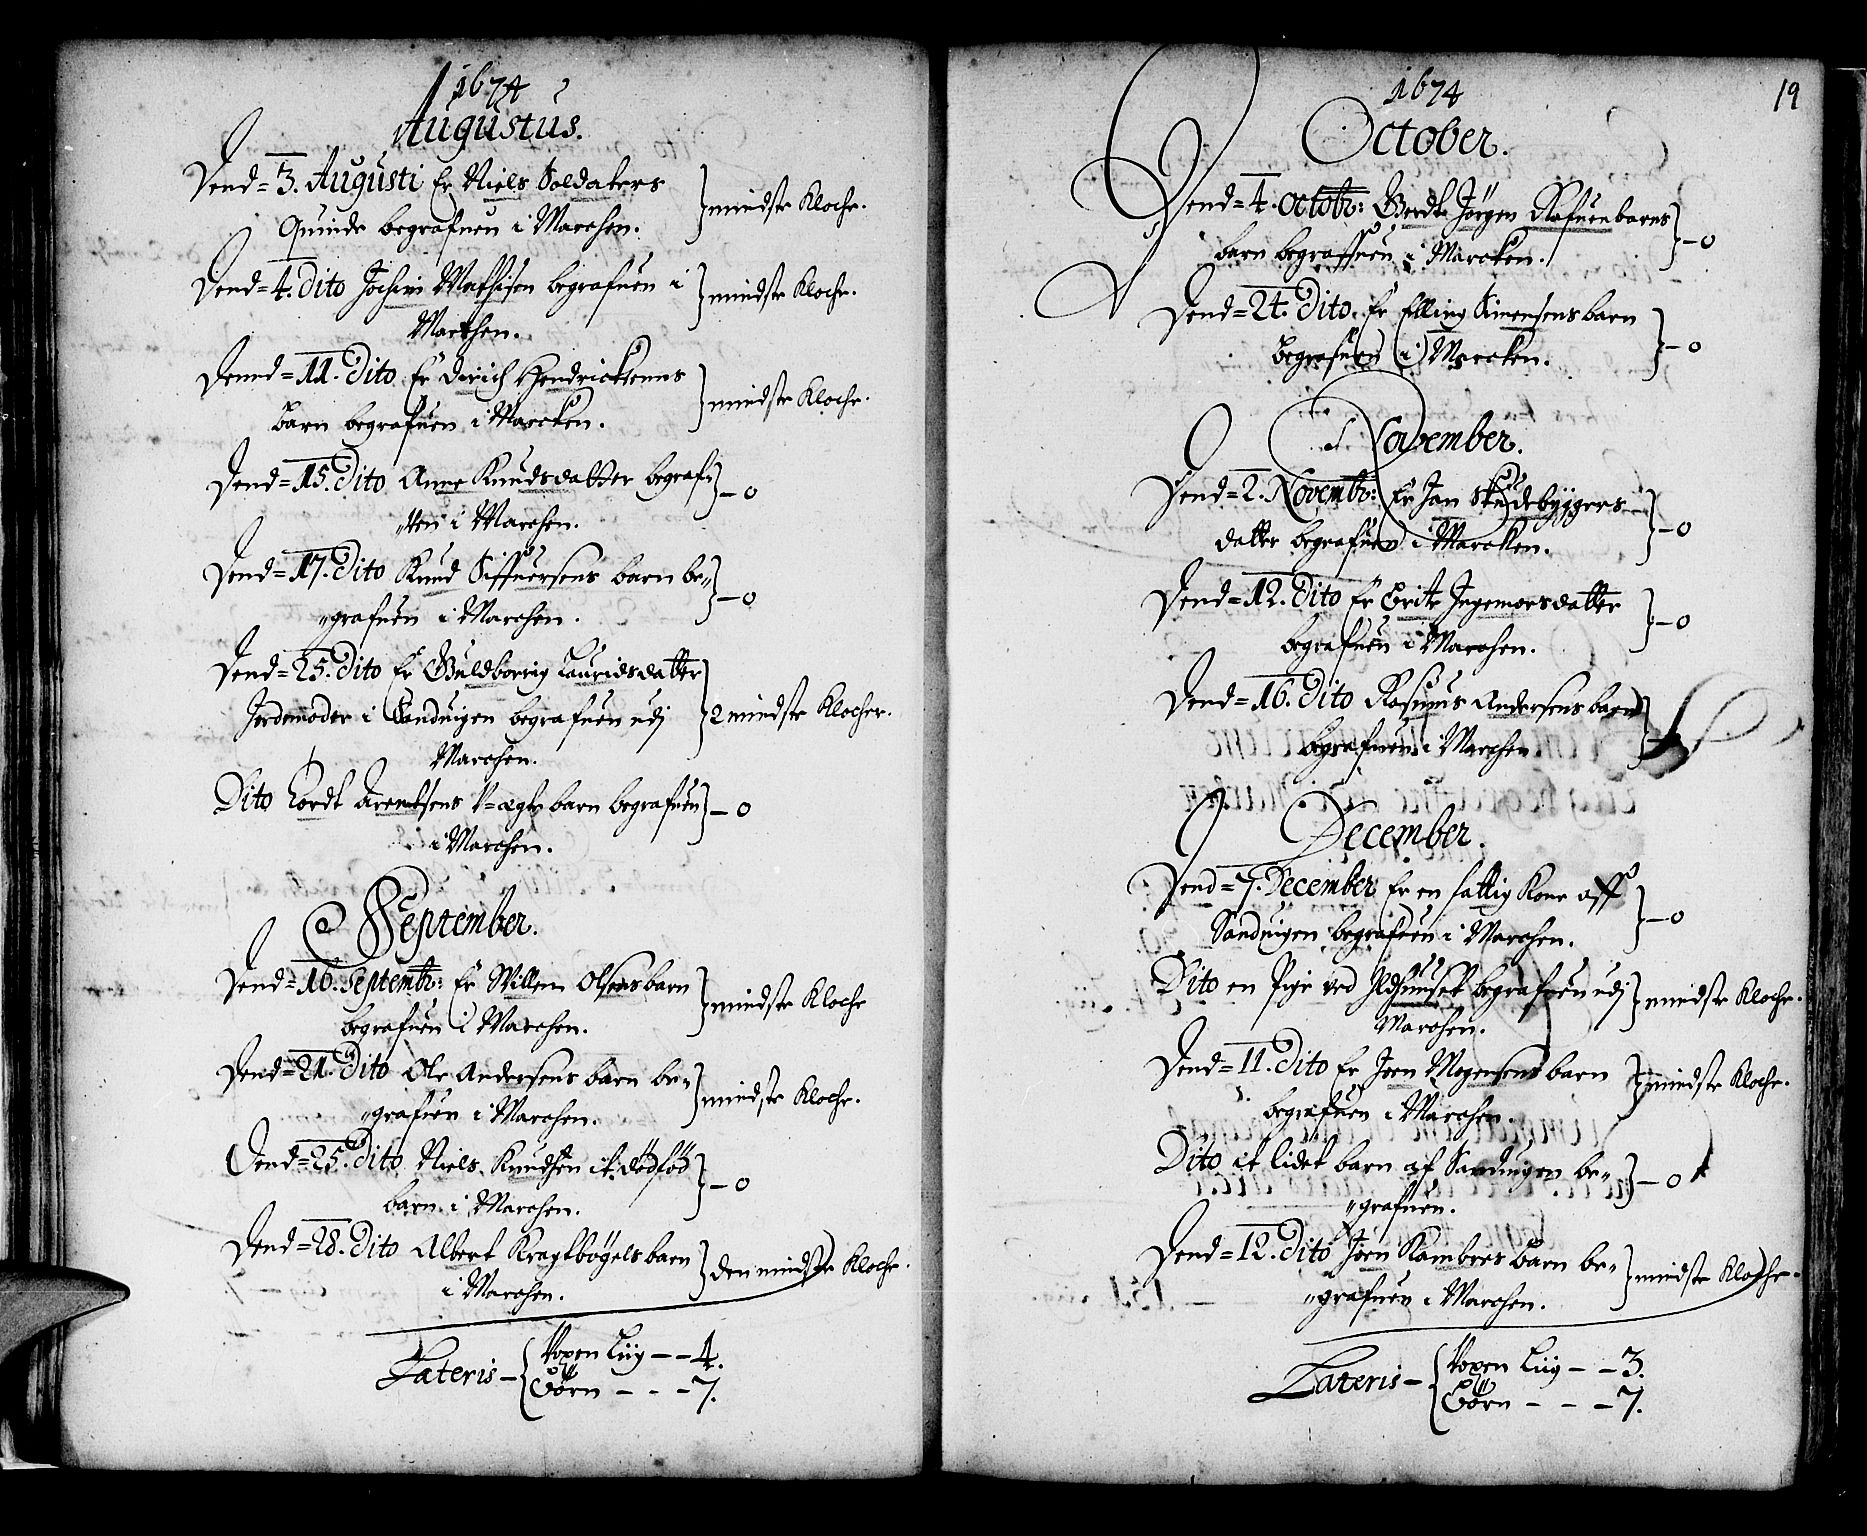 1674
Augustus.
Dend= 3. Augusti Er Niels Soldaters
Quinde begrafuen i Marchen.
mindste Kloche.
Dend= 4. Dito Jochim Mathisen begrafuen i
Marchen.
mindste Kloche.
Dend= 11. Dito Er Dirich Hendricksenns
Barn begrafuen i Marcken.
mindste Kloche.
Dend= 15. Dito Anne Knudsdatter begraf¨
¨uen i Marchen.
– 0
Dend= 17. Dito Knud Siffuersens barn be¨
¨grafuen i Marchen.
– 0
Dend= 25. Dito Er Guldborrig Lauridsdatter
Jordemoder i Sanduigen begrafuen udj
Marchen.
2 mindste Klocher.
Dito Cordt Arentsens V=ægte barn begrafuen
i Marchen.
– 0
September.
Dend= 16. Septembr: Er Willem Olsens barn
begrafuen i Marchen.
mindste Kloche
Dend= 21. Dito Ole Andersens barn be¨
¨grafuen i Marchen.
mindste Kloche.
Dend= 25. Dito Niels Knudsen it dødfød
barn i Marchen.
– 0
Dend= 28. Dito Albert Kragtbøgels barn
i Marchen.
den mindste Kloche.
Lateris – Voxen Liig – – 4.
Börn – – – 7.
1674
19
October.
Dend= 4. Octobr: Gerdt Jörgen Rafuenbarns
barn begraffuen i Marcken.
– 0
Dend= 24. Dito. Er Elling Simensens barn
begrafuen i Marcken.
– 0
November.
Dend= 2. Novembr: Er Jan Skudebyggers
datter begrafuen i Marcken.
– 0
Dend= 12. Dito Er Brite Ingemorsdatter
begrafuen i Marchen.
– 0
Dend= 16. Dito Rasmus Andersens barn
begrafuen i Marchen.
December.
Dend= 7. December Er en fattig Kone aff
Sanduigen begrafuen i Marchen.
– 0
Dito en Pige ved begrafuen udj
Marchen.
mindste Kloche.
Dend= 11. Dito Er Joen Mogensens barn
begrafuen i Marchen.
mindste Kloche.
Dito it lidet barn af Sanduigen be¨
¨grafuen.
– 0
Dend= 12. Dito Joen Kambres barn be¨
¨grafuen i Marchen.
mindste Kloche.
Lateris – Voxen Liig – – 3.
Börn – – – 7.